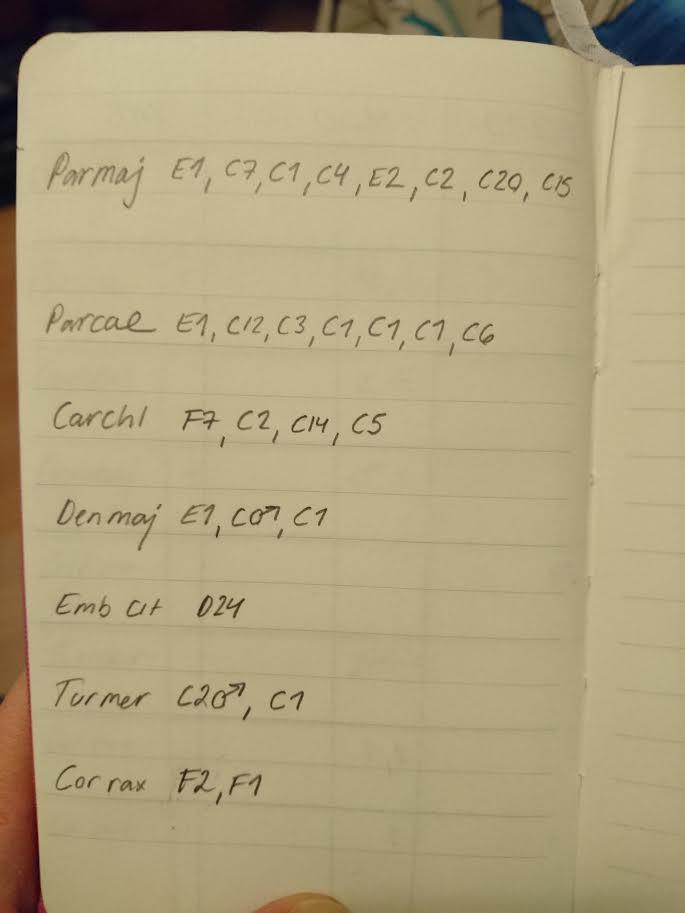 Parmaj E1, C7, C1, C4, E2, C2, C20, C15
Parcae E1, C12, C3, C1, C1, C1, C6
Carchl F7, C2, C14, C5
Denmaj E1, C♂, C1
Emb cit D24
Turmer C2♂, C1
Corrax F2, F1